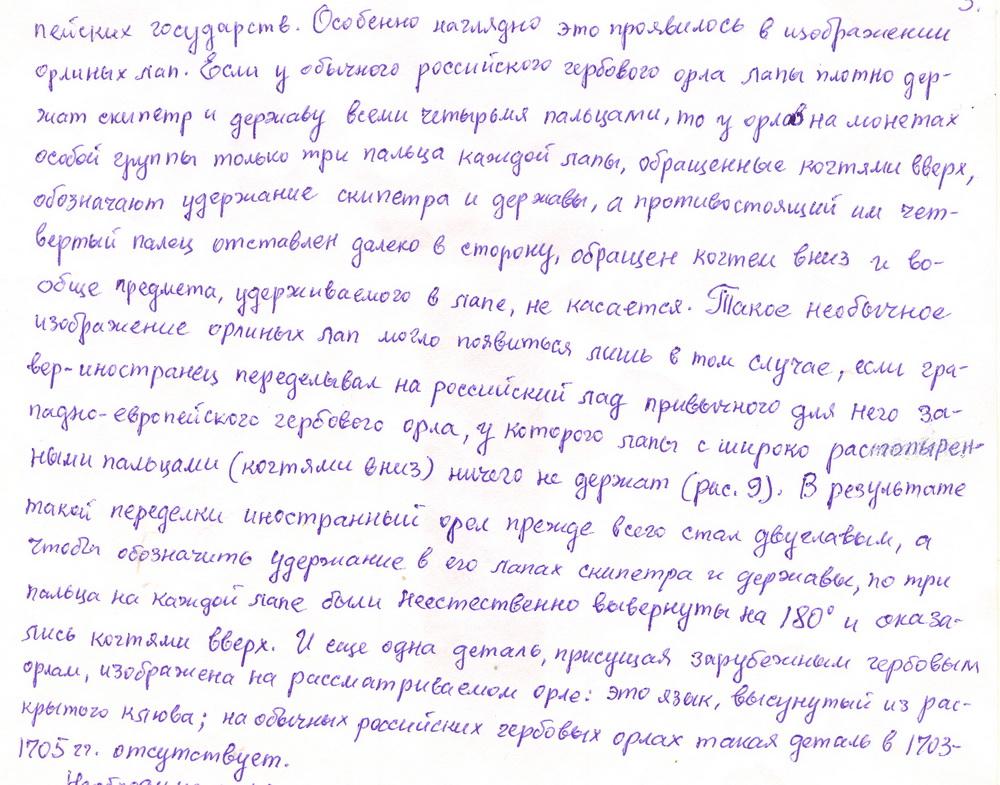 5.
пейских государств. Особенно наглядно это проявилось в изображении
орлиных лап. Если у обычного российского гербового орла лапы плотно дер-
жат скипетр и державу всеми четырьмя пальцами, то у орлов на монетах
особой группы только три пальца каждой лапы, обращенные когтями вверх,
обозначают удержание скипетра и державы, а противостоящий им чет-
вертый палец отставлен далеко в сторону, обращен когтем вниз и во-
обще предмета, удерживаемого в лапе, не касается. Такое необычное
изображение орлиных лап могло появиться лишь в том случае, если гра-
вер-иностранец переделывал на российский лад привычного для него за-
падно-европейского гербового орла, у которого лапы с широко растопырен-
ными пальцами (когтями вниз) ничего не держат (рис. 9). В результате
такой переделки иностранный орел прежде всего стал двуглавым, а
чтобы обозначить удержание в его лапах скипетра и державы, по три
пальца на каждой лапе были неестественно вывернуты на 180° и оказа-
лись когтями вверх. И еще одна деталь, присущая зарубежным гербовым
орлам, изображена на рассматриваемом орле: это язык, высунутый из рас-
крытого клюва; на обычных российских гербовых орлах такая деталь в 1703-
1705 гг. отсутствует.